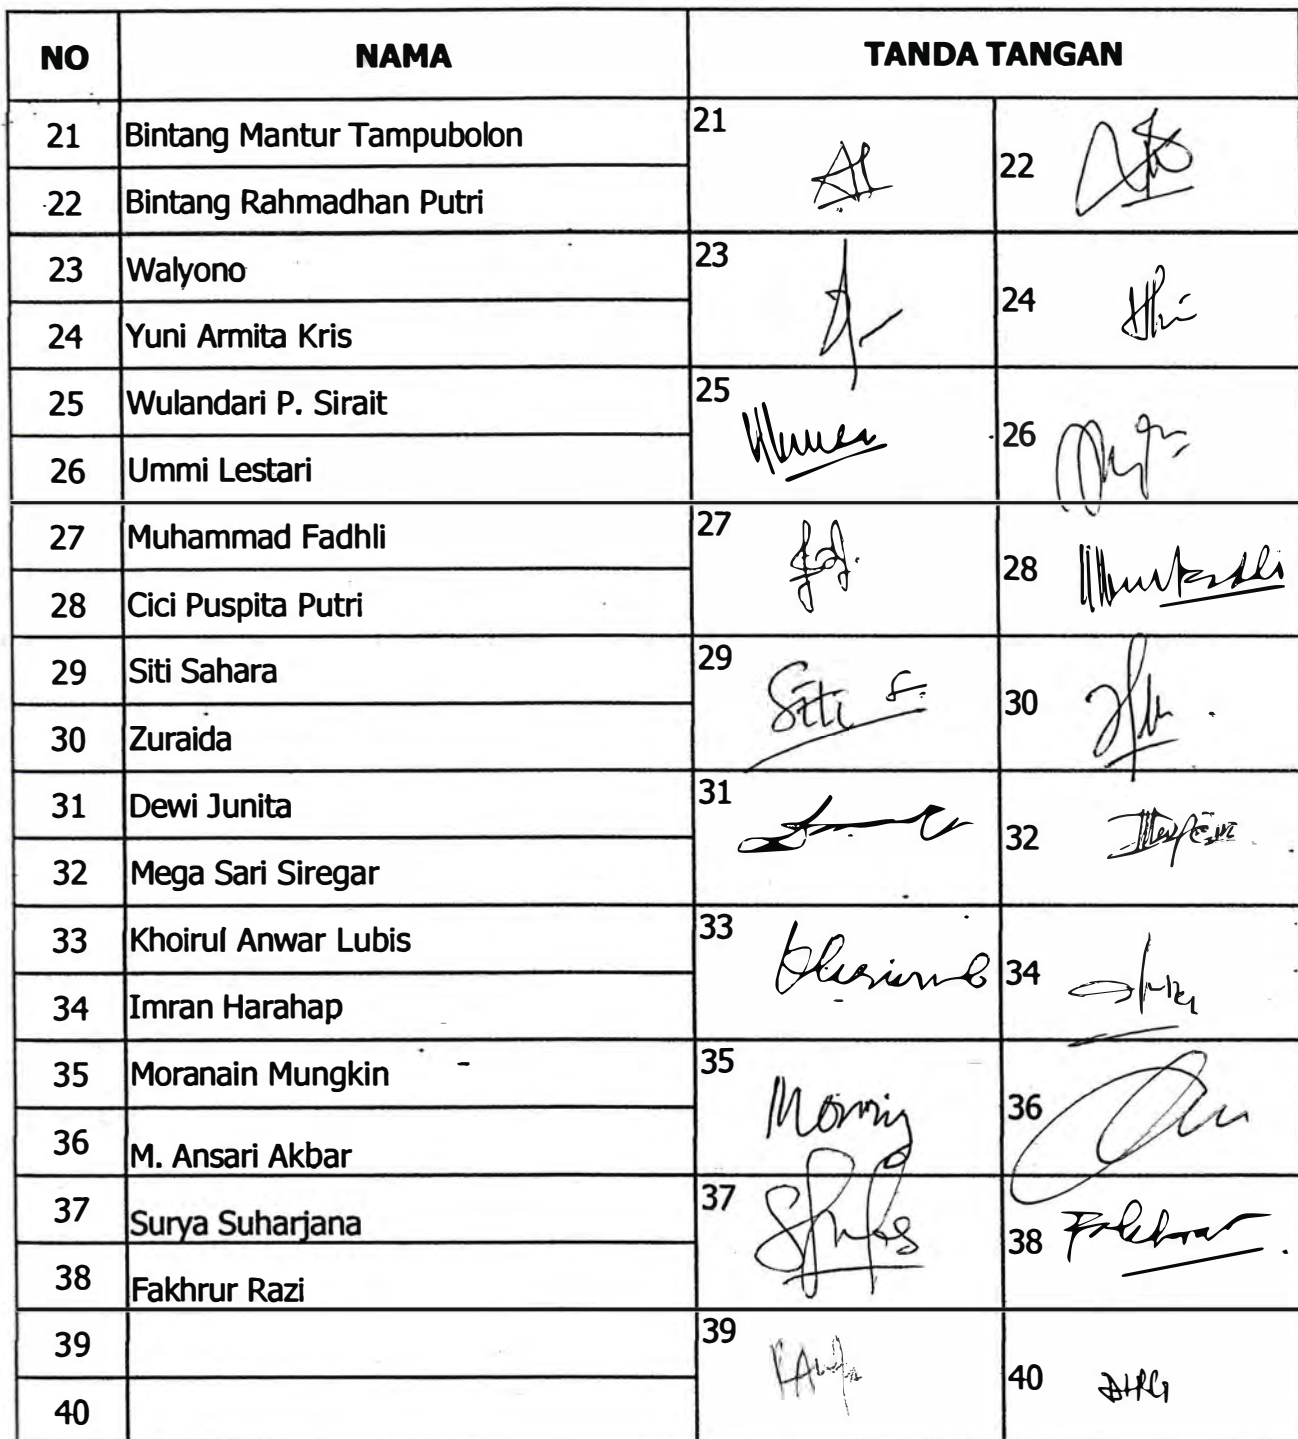 NO NAMA TANDA TANGAN
21 Bintang Mantur Tampubolon 21
22 Bintang Rahmadhan Putri 22
23 Walyono 23
24 Yuni Armita Kris 24
25 Wulandari P. Sirait 25
26 Ummi Lestari 26
27 Muhammad Fadhli 27
28 Cici Puspita Putri 28
29 Siti Sahara 29 Siti S.
30 Zuraida 30
31 Dewi Junita 31
32 Mega Sari Siregar 32
33 Khoirul Anwar Lubis 33
34 Imran Harahap 34
35 Moranain Mungkin 35
36 M. Ansari Akbar 36
37 Surya Suharjana 37
38 Fakhrur Razi 38
39 39
40 40